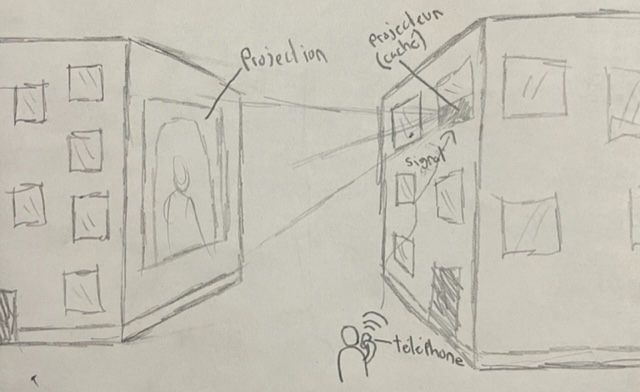 Projection
Projecteur
(caché)
signal
téléphone